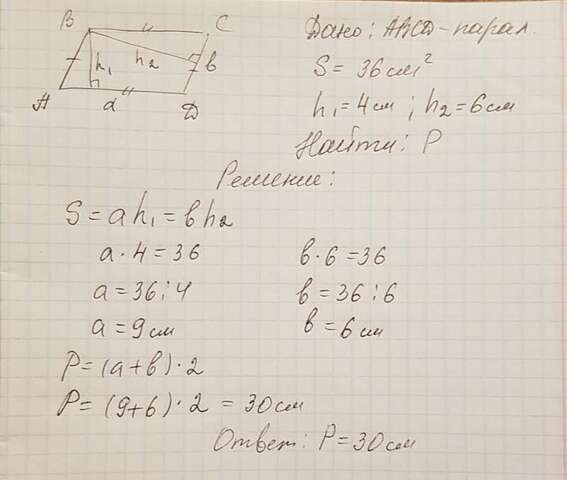 B C
h₁ h₂ b
A a D
Дано: ABCD - парал.
S = 36 см²
h₁ = 4 см ; h₂ = 6 см
Найти: P
Решение:
S = ah₁ = bh₂
a · 4 = 36 b · 6 = 36
a = 36 : 4 b = 36 : 6
a = 9 см b = 6 см
P = (a + b) · 2
P = (9 + 6) · 2 = 30 см
Ответ: P = 30 см